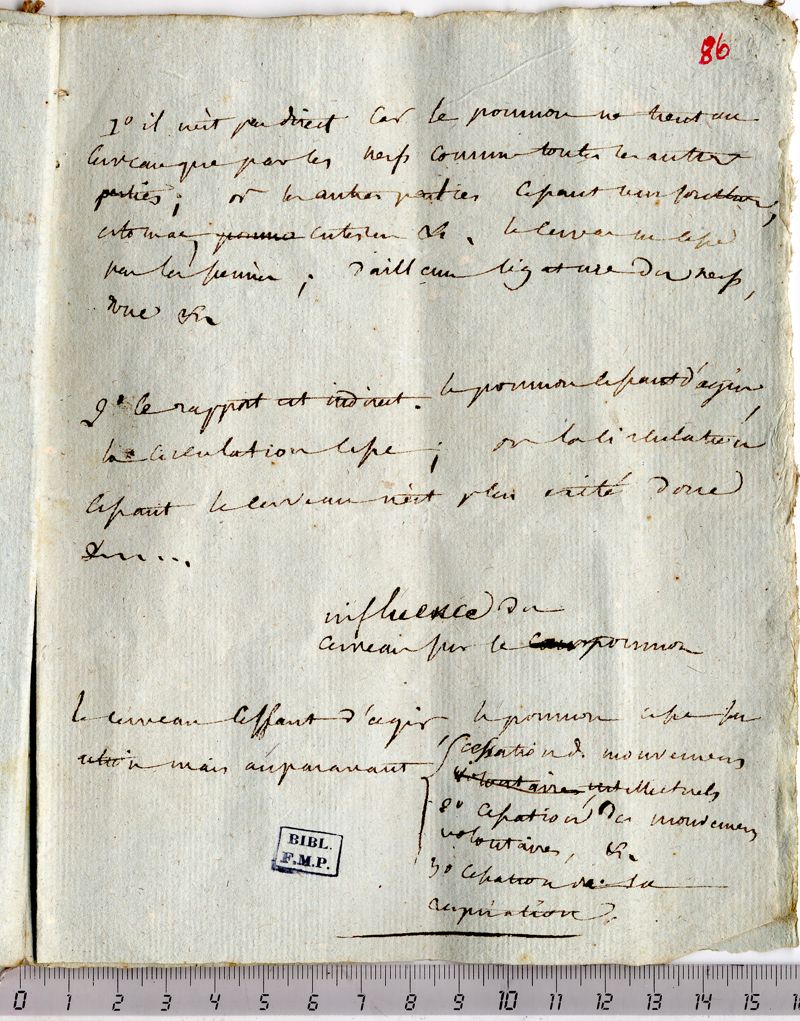 86
1° il n'est pas direct car le poumon ne tient au
cerveau que par les nerfs comme toutes les autres
parties; or les autres parties cessant leur fonction,
estomac, intestin &c. le cerveau ne cesse
pas les siennes; d'ailleurs ligature du nerf,
&c
2° le rapport est indirect. le poumon cessant d'agir,
la circulation cesse; or la circulation
cessant le cerveau n'est plus excité donc
&....
influence du
cerveau sur le poumon
le cerveau cessant d'agir, le poumon cesse son
action mais auparavant cessation des mouvemens
volontaires intellectuels
2° cessation des mouvemens
volontaires, &c
3° cessation de la
respiration.
BIBL.
F.M.P.
0 1 2 3 4 5 6 7 8 9 10 11 12 13 14 15